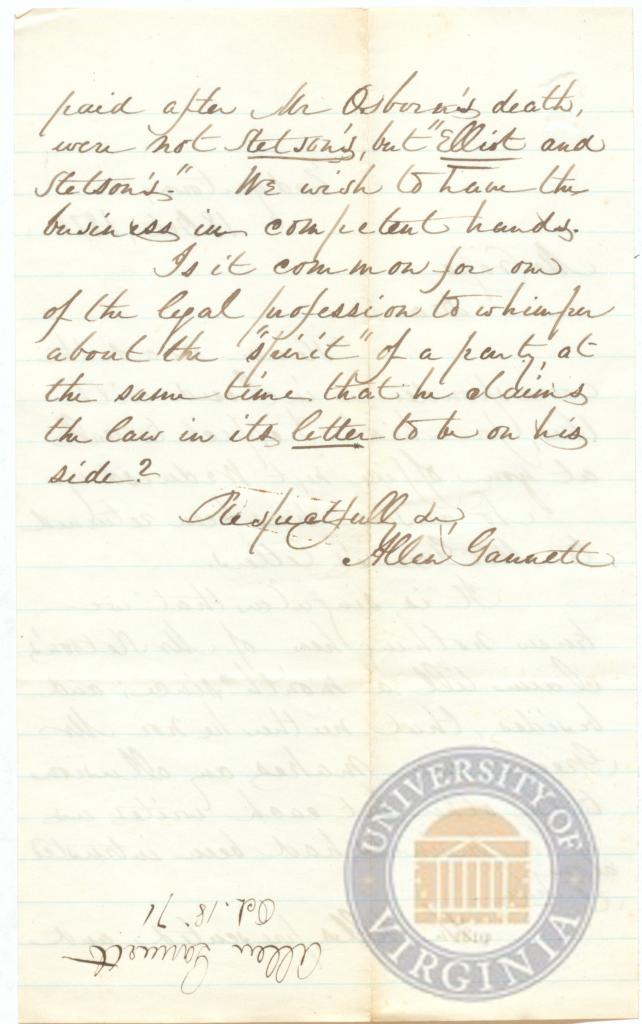 paid after Mr Osborn's death,
were not Stetson's, but "Elliot and
Stetson's." We wish to have the
business in competent hands.
Is it common for one
of the legal profession to whimper
about the "spirit" of a party, at
the same time that he claims
the law in its letter to be on his
side?
Respectfully &c,
Allen Gannett
UNIVERSITY OF
VIRGINIA
1819
Allen Gannett
Oct. 18 '71